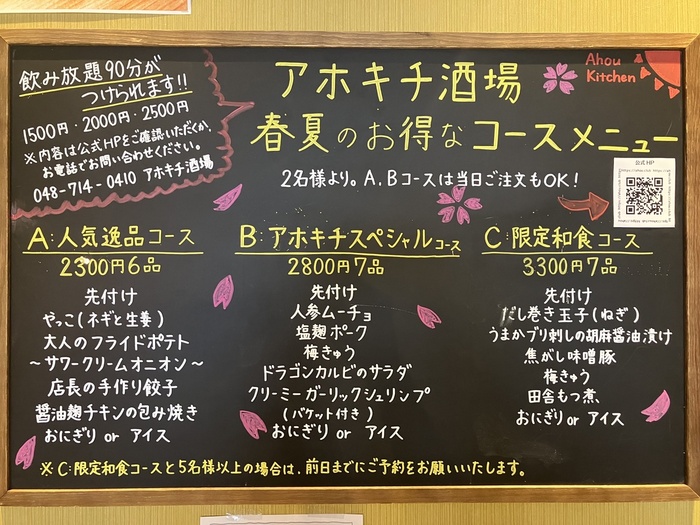 飲み放題90分が
つけられます!!
1500円・2000円・2500円
※内容は公式HPをご確認いただくか、
お電話でお問い合わせください。
048-714-0410 アホキチ酒場
アホキチ酒場
春夏のお得なコースメニュー
2名様より。A,Bコースは当日ご注文もOK!
Ahou
Kitchen
公式HP
A:人気逸品コース
2300円6品
先付け
やっこ(ネギと生姜)
大人のフライドポテト
〜サワークリームオニオン〜
店長の手作り餃子
醤油麹チキンの包み焼き
おにぎり or アイス
B:アホキチスペシャルコース
2800円7品
先付け
人参ムーチョ
塩麹ポーク
梅きゅう
ドラゴンカルビのサラダ
クリーミーガーリックシュリンプ
(バケット付き)
おにぎり or アイス
C:限定和食コース
3300円7品
先付け
だし巻き玉子(ねぎ)
うまかブリ刺しの胡麻醤油漬け
焦がし味噌豚
梅きゅう
田舎もつ煮
おにぎり or アイス
※C:限定和食コースと5名様以上の場合は、前日までにご予約をお願いいたします。